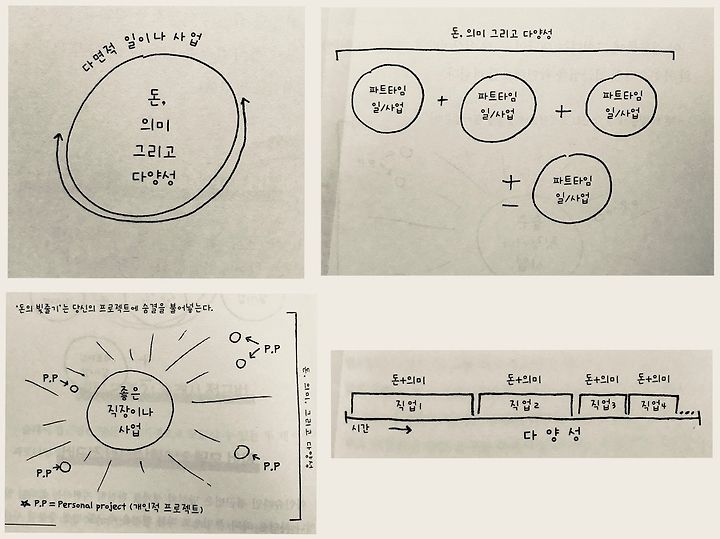 다면적 일이나 사업
돈,
의미
그리고
다양성
돈, 의미 그리고 다양성
파트타임
일/사업
+
파트타임
일/사업
+
파트타임
일/사업
+
−
파트타임
일/사업
'돈의 빛줄기'는 당신의 프로젝트에 숨결을 불어넣는다.
P.P
P.P
좋은
직장이나
사업
P.P
P.P
돈, 의미, 그리고 다양성
★ P.P = Personal project (개인적 프로젝트)
돈+의미
돈+의미
돈+의미
돈+의미
직업1
직업2
직업3
직업4
....
시간
다양성